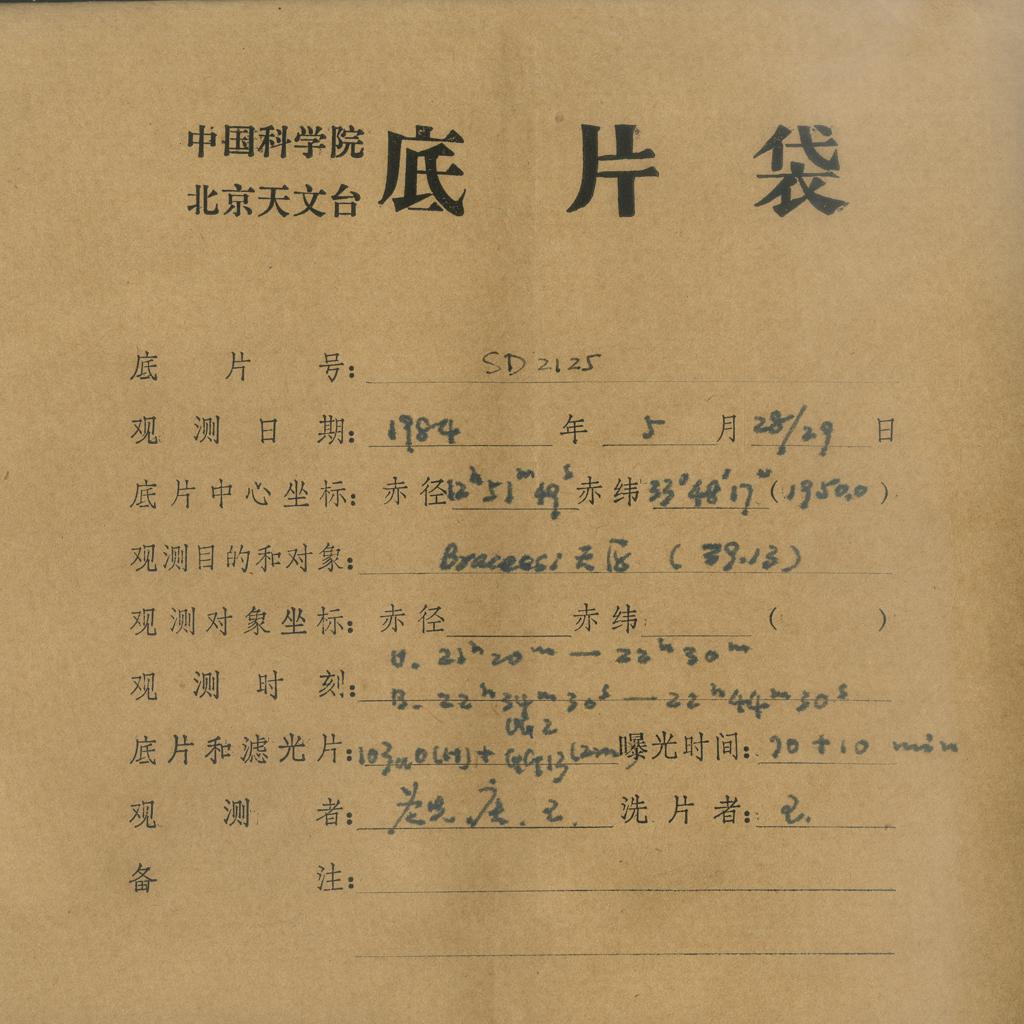 中国科学院
北京天文台
底片袋
底片号: SD 2125
观测日期: 1984 年 5 月 28/29 日
底片中心坐标: 赤径 12ʰ51ᵐ49ˢ 赤纬 33°48′17″ (1950.0)
观测目的和对象: 天区 (39.13)
观测对象坐标: 赤径 赤纬 ( )
U. 21ʰ20ᵐ — 22ʰ30ᵐ
观测时刻: B. 22ʰ34ᵐ30ˢ — 22ʰ44ᵐ30ˢ
UG2
底片和滤光片: 103aO(H) + GG13 (2mm) 曝光时间: 70 + 10 min
观测者: 洗片者: 王.
备注: